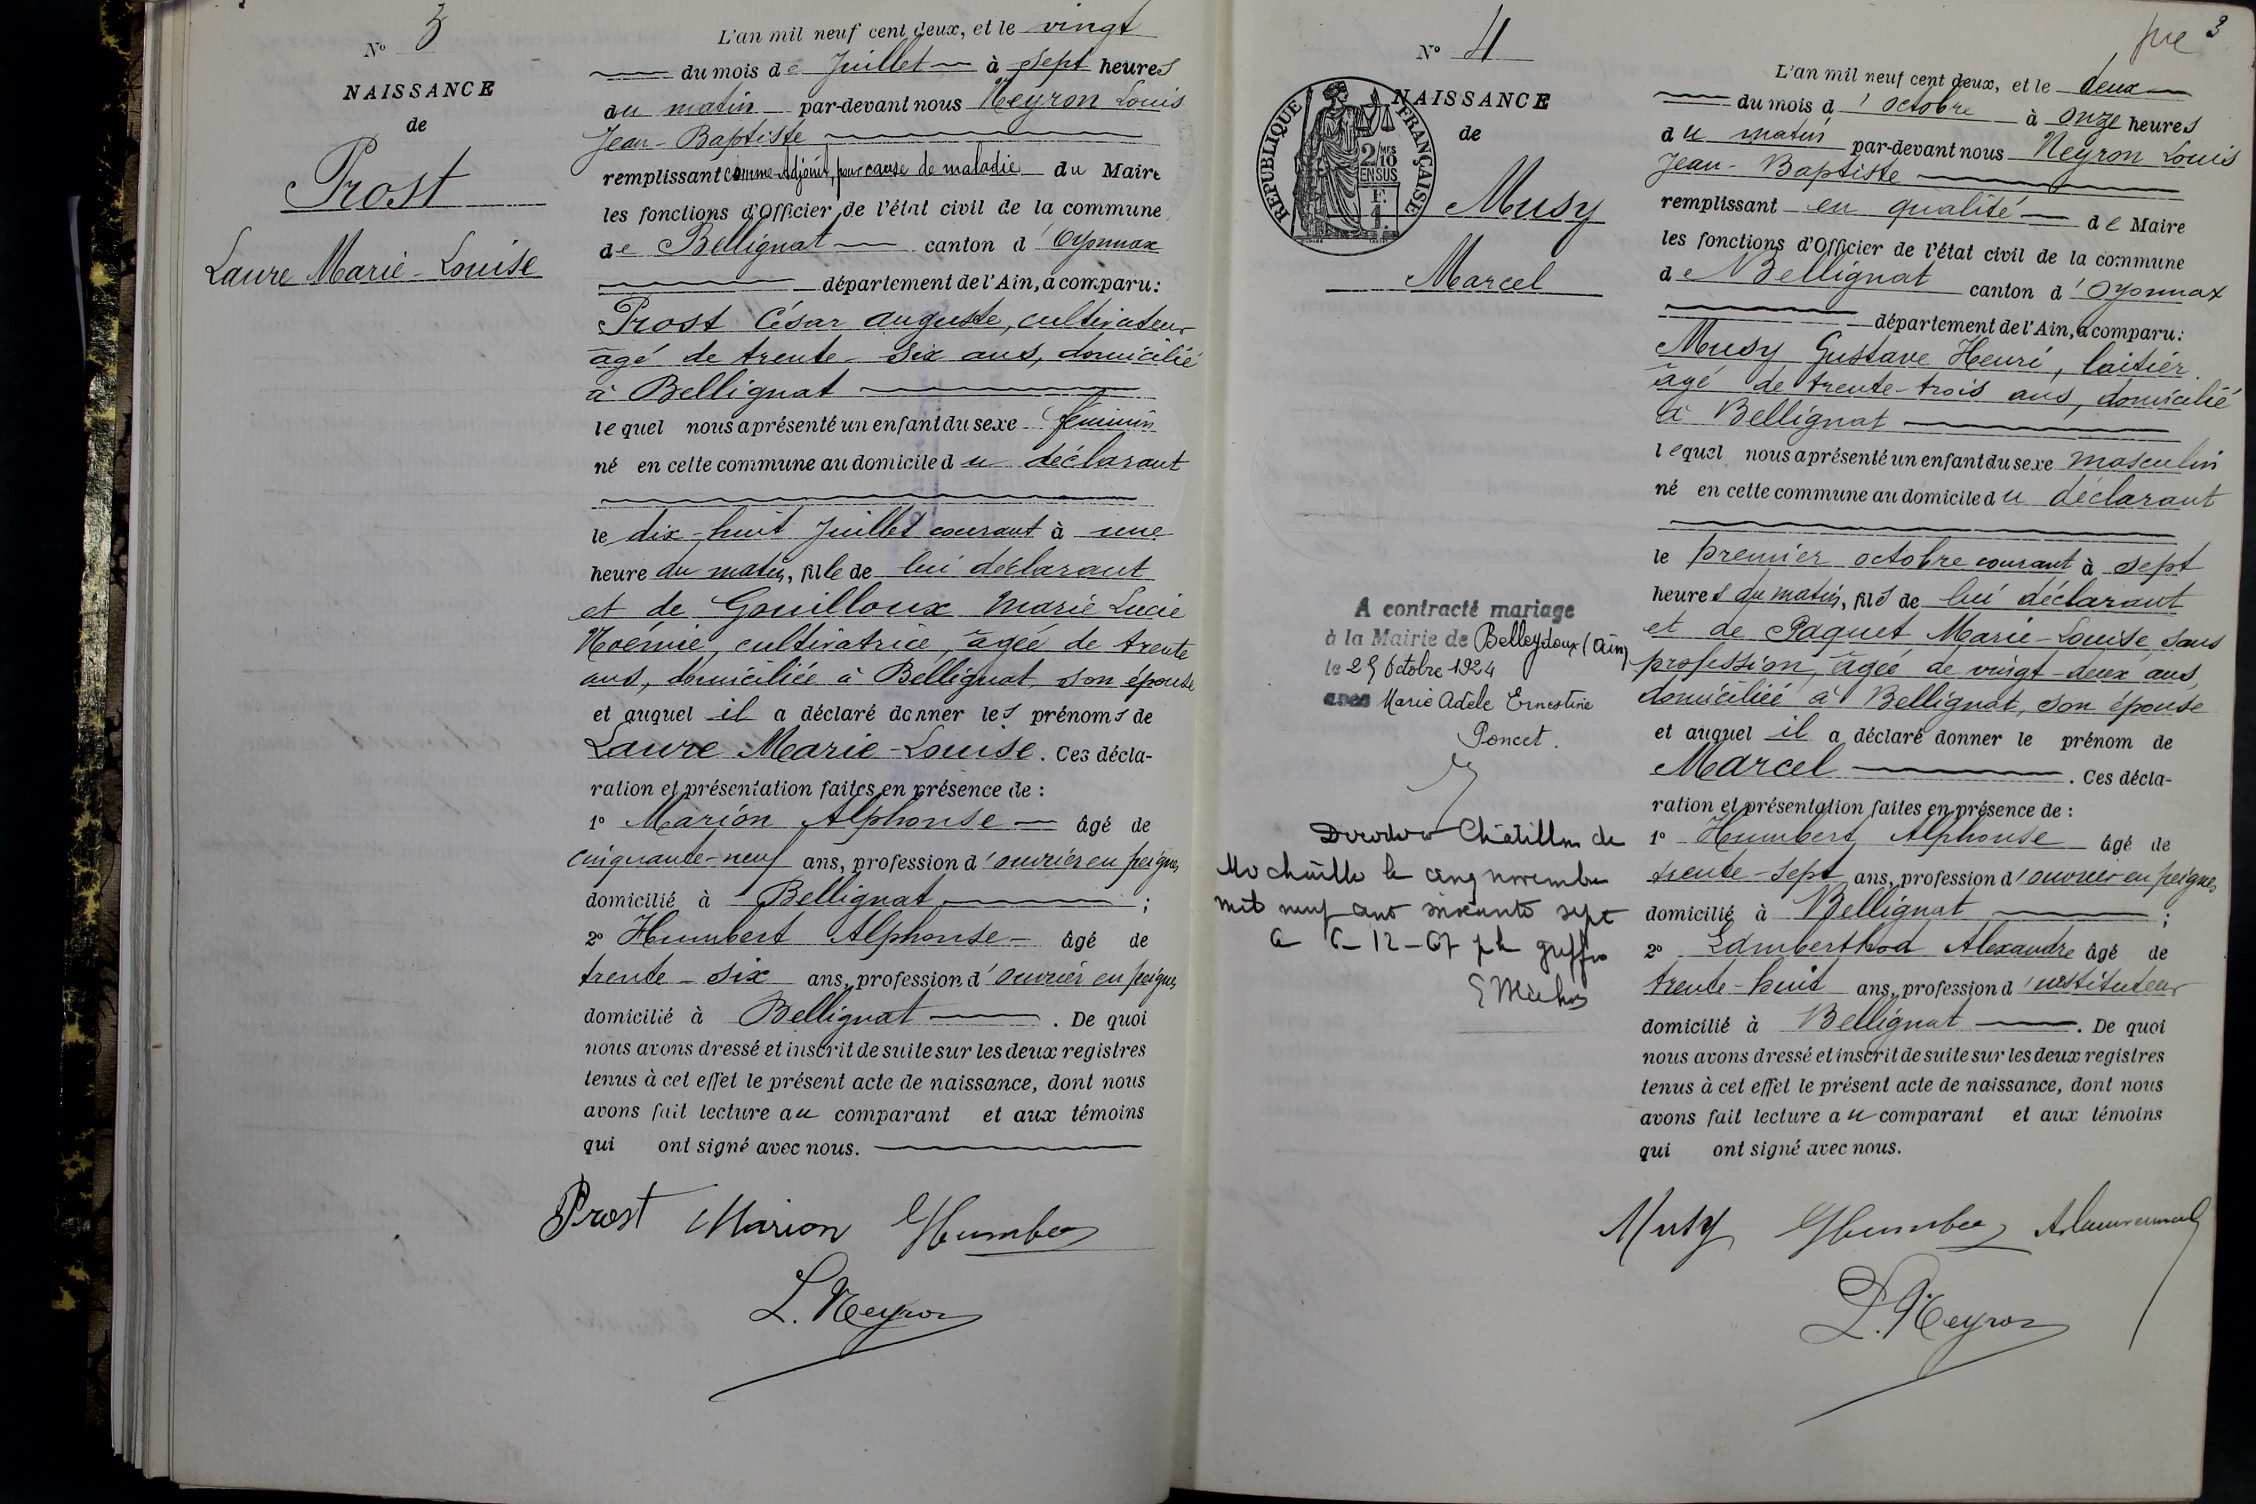 N° 3
NAISSANCE
de
Prost
Laure Marie-Louise
L'an mil neuf cent deux, et le vingt
du mois de Juillet à sept heures
du matin par-devant nous Neyron Louis
Jean-Baptiste
remplissant comme Adjoint, pour cause de maladie du Maire
les fonctions d'Officier de l'état civil de la commune
de Bellignat canton d'Oyonnax
département de l'Ain, a comparu:
Prost César auguste, cultivateur
âgé de trente-six ans, domicilié
à Bellignat
lequel nous a présenté un enfant du sexe féminin
né en cette commune au domicile du déclarant
le dix-huit Juillet courant à une
heure du matin, fille de lui déclarant
et de Gouilloux Marie Lucie
Noémie, cultivatrice, âgée de trente
ans, domiciliée à Bellignat, son épouse
et auquel il a déclaré donner les prénoms de
Laure Marie-Louise. Ces décla-
ration et présentation faites en présence de :
1° Marion Alphonse âgé de
cinquante-neuf ans, profession d'ouvrier en peignes
domicilié à Bellignat ;
2° Humbert Alphonse âgé de
trente-six ans, profession d'ouvrier en peignes
domicilié à Bellignat. De quoi
nous avons dressé et inscrit de suite sur les deux registres
tenus à cet effet le présent acte de naissance, dont nous
avons fait lecture au comparant et aux témoins
qui ont signé avec nous.
Prost Marion Humbert
L. Neyron
3
N° 4
NAISSANCE
de
REPUBLIQUE FRANÇAISE
2/10
EN SUS
Musy
Marcel
A contracté mariage
à la Mairie de Belleydoux (Ain)
le 25 Octobre 1924
avec Marie Adèle Ernestine
Poncet.
Châtillon de
Michaille le cinq novembre
mil neuf cent soixante sept
L'an mil neuf cent deux, et le deux
du mois d'octobre à onze heures
du matin par-devant nous Neyron Louis
Jean-Baptiste
remplissant en qualité de Maire
les fonctions d'Officier de l'état civil de la commune
de Bellignat canton d'Oyonnax
département de l'Ain, a comparu:
Musy Gustave Henri, laitier
âgé de trente-trois ans, domicilié
à Bellignat
lequel nous a présenté un enfant du sexe masculin
né en cette commune au domicile du déclarant
le premier octobre courant à sept
heures du matin, fils de lui déclarant
et de Paquet Marie-Louise sans
profession, âgée de vingt-deux ans,
domiciliée à Bellignat, son épouse
et auquel il a déclaré donner le prénom de
Marcel. Ces décla-
ration et présentation faites en présence de :
1° Humbert Alphonse âgé de
trente-sept ans, profession d'ouvrier en peignes
domicilié à Bellignat ;
2° Lamberthod Alexandre âgé de
trente-huit ans, profession d'instituteur
domicilié à Bellignat. De quoi
nous avons dressé et inscrit de suite sur les deux registres
tenus à cet effet le présent acte de naissance, dont nous
avons fait lecture au comparant et aux témoins
qui ont signé avec nous.
Musy Humbert
L. Neyron